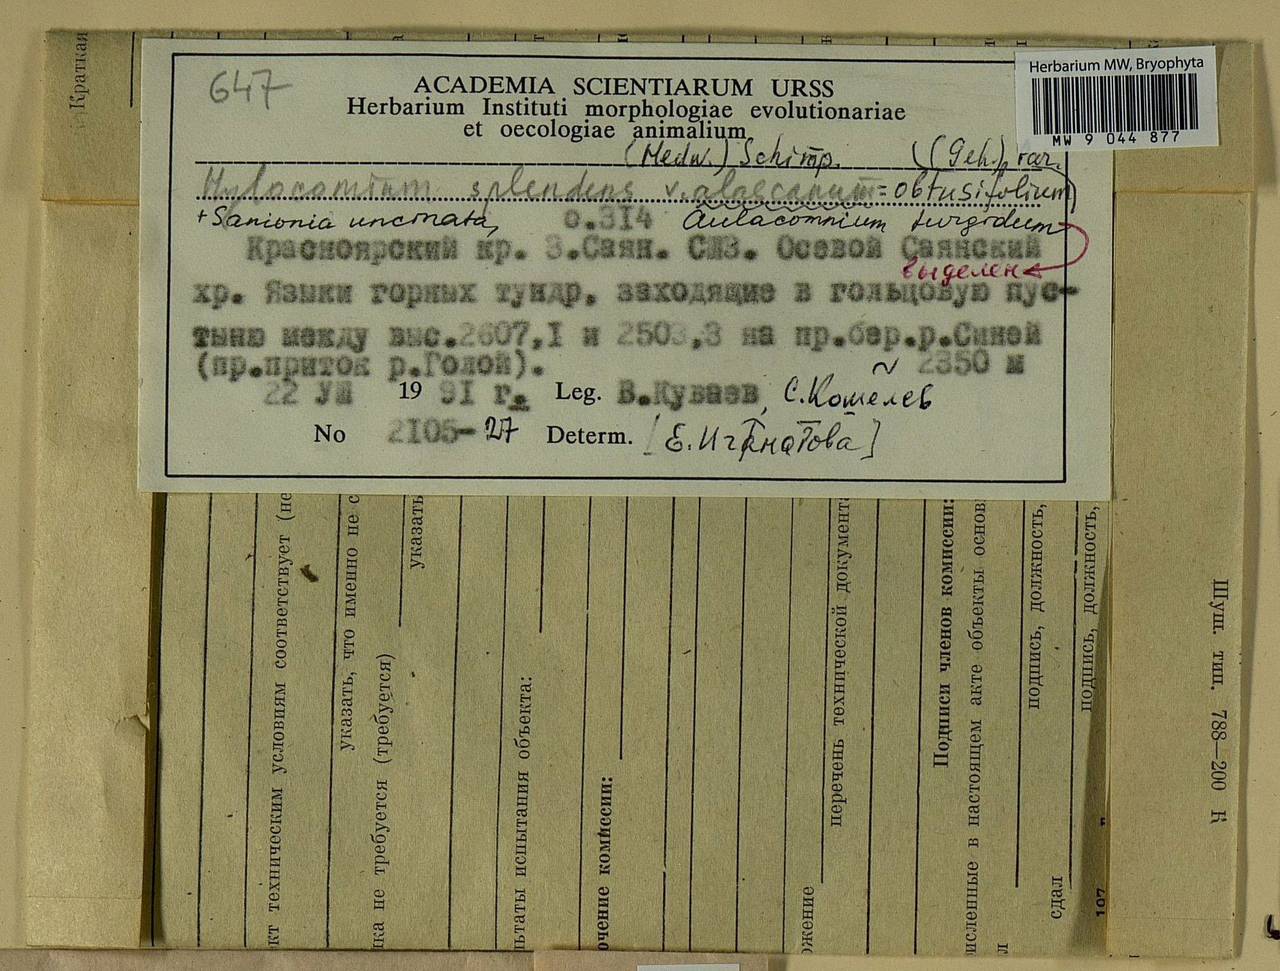 Краткая
647
ACADEMIA SCIENTIARUM URSS
Herbarium Instituti morphologiae evolutionariae
et oecologiae animalium
Herbarium MW, Bryophyta
MW 9 044 877
(Hedw.) Schimp. (Geh.) var.
Hylocomium splendens v. alascanum = obtusifolium
+ Sanionia uncinata, о.314 Aulacomnium turgidum
Красноярский кр. З.Саян. СШЗ. Осевой Саянский
выделен
хр. Языки горных тундр, заходящие в гольцовую пус-
тыню между выс.2607,1 и 2503,3 на пр.бер.р.Синей
(пр.приток р.Голой). ~ 2350 м
22 УII 19 91 г. Leg. В.Куваев, С.Кошелев
No 2105-27 Determ. [Е.Игнатова]
кт техническим условиям соответствует (не
указать, что именно не с
ка не требуется (требуется)
указать
льтаты испытания объекта:
очение комиссии:
перечень технической документ
ожение
Подписи членов комиссии:
исленные в настоящем акте объекты основ
л
подпись, должность,
сдал
подпись, должность,
197 г.
Шуш. тип. 788—200 К